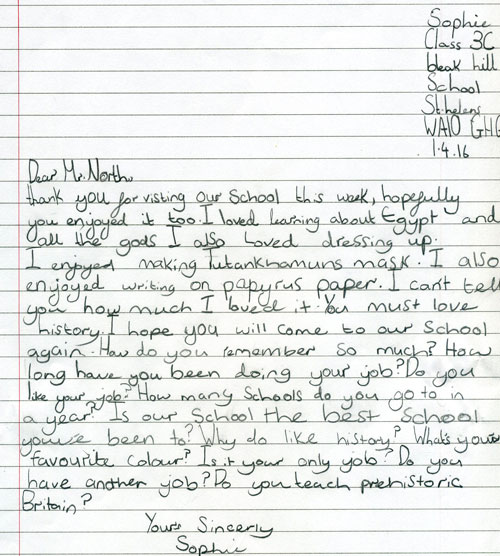 Sophie
Class 3C
bleak hill
School
St.helens
WA10 GHG
1.4.16
Dear Mr.North,
thank you for visting our School this week, hopefully
you enjoyed it too. I loved learning about Egypt and
all the gods I also loved dressing up.
I enjoyed making Tutankhamuns mask. I also
enjoyed writing on papyrus paper. I can't tell
you how much I loved it. You must love
history. I hope you will come to our School
again. How do you remember so much? How
long have you been doing your job? Do you
like your job? How many Schools do you go to in
a year? Is our School the best School
youve been to? Why do like history? What's your
favourite colour? Is it your only job? Do you
have another job? Do you teach prehistoric
Britain?
Yours Sincerly
Sophie